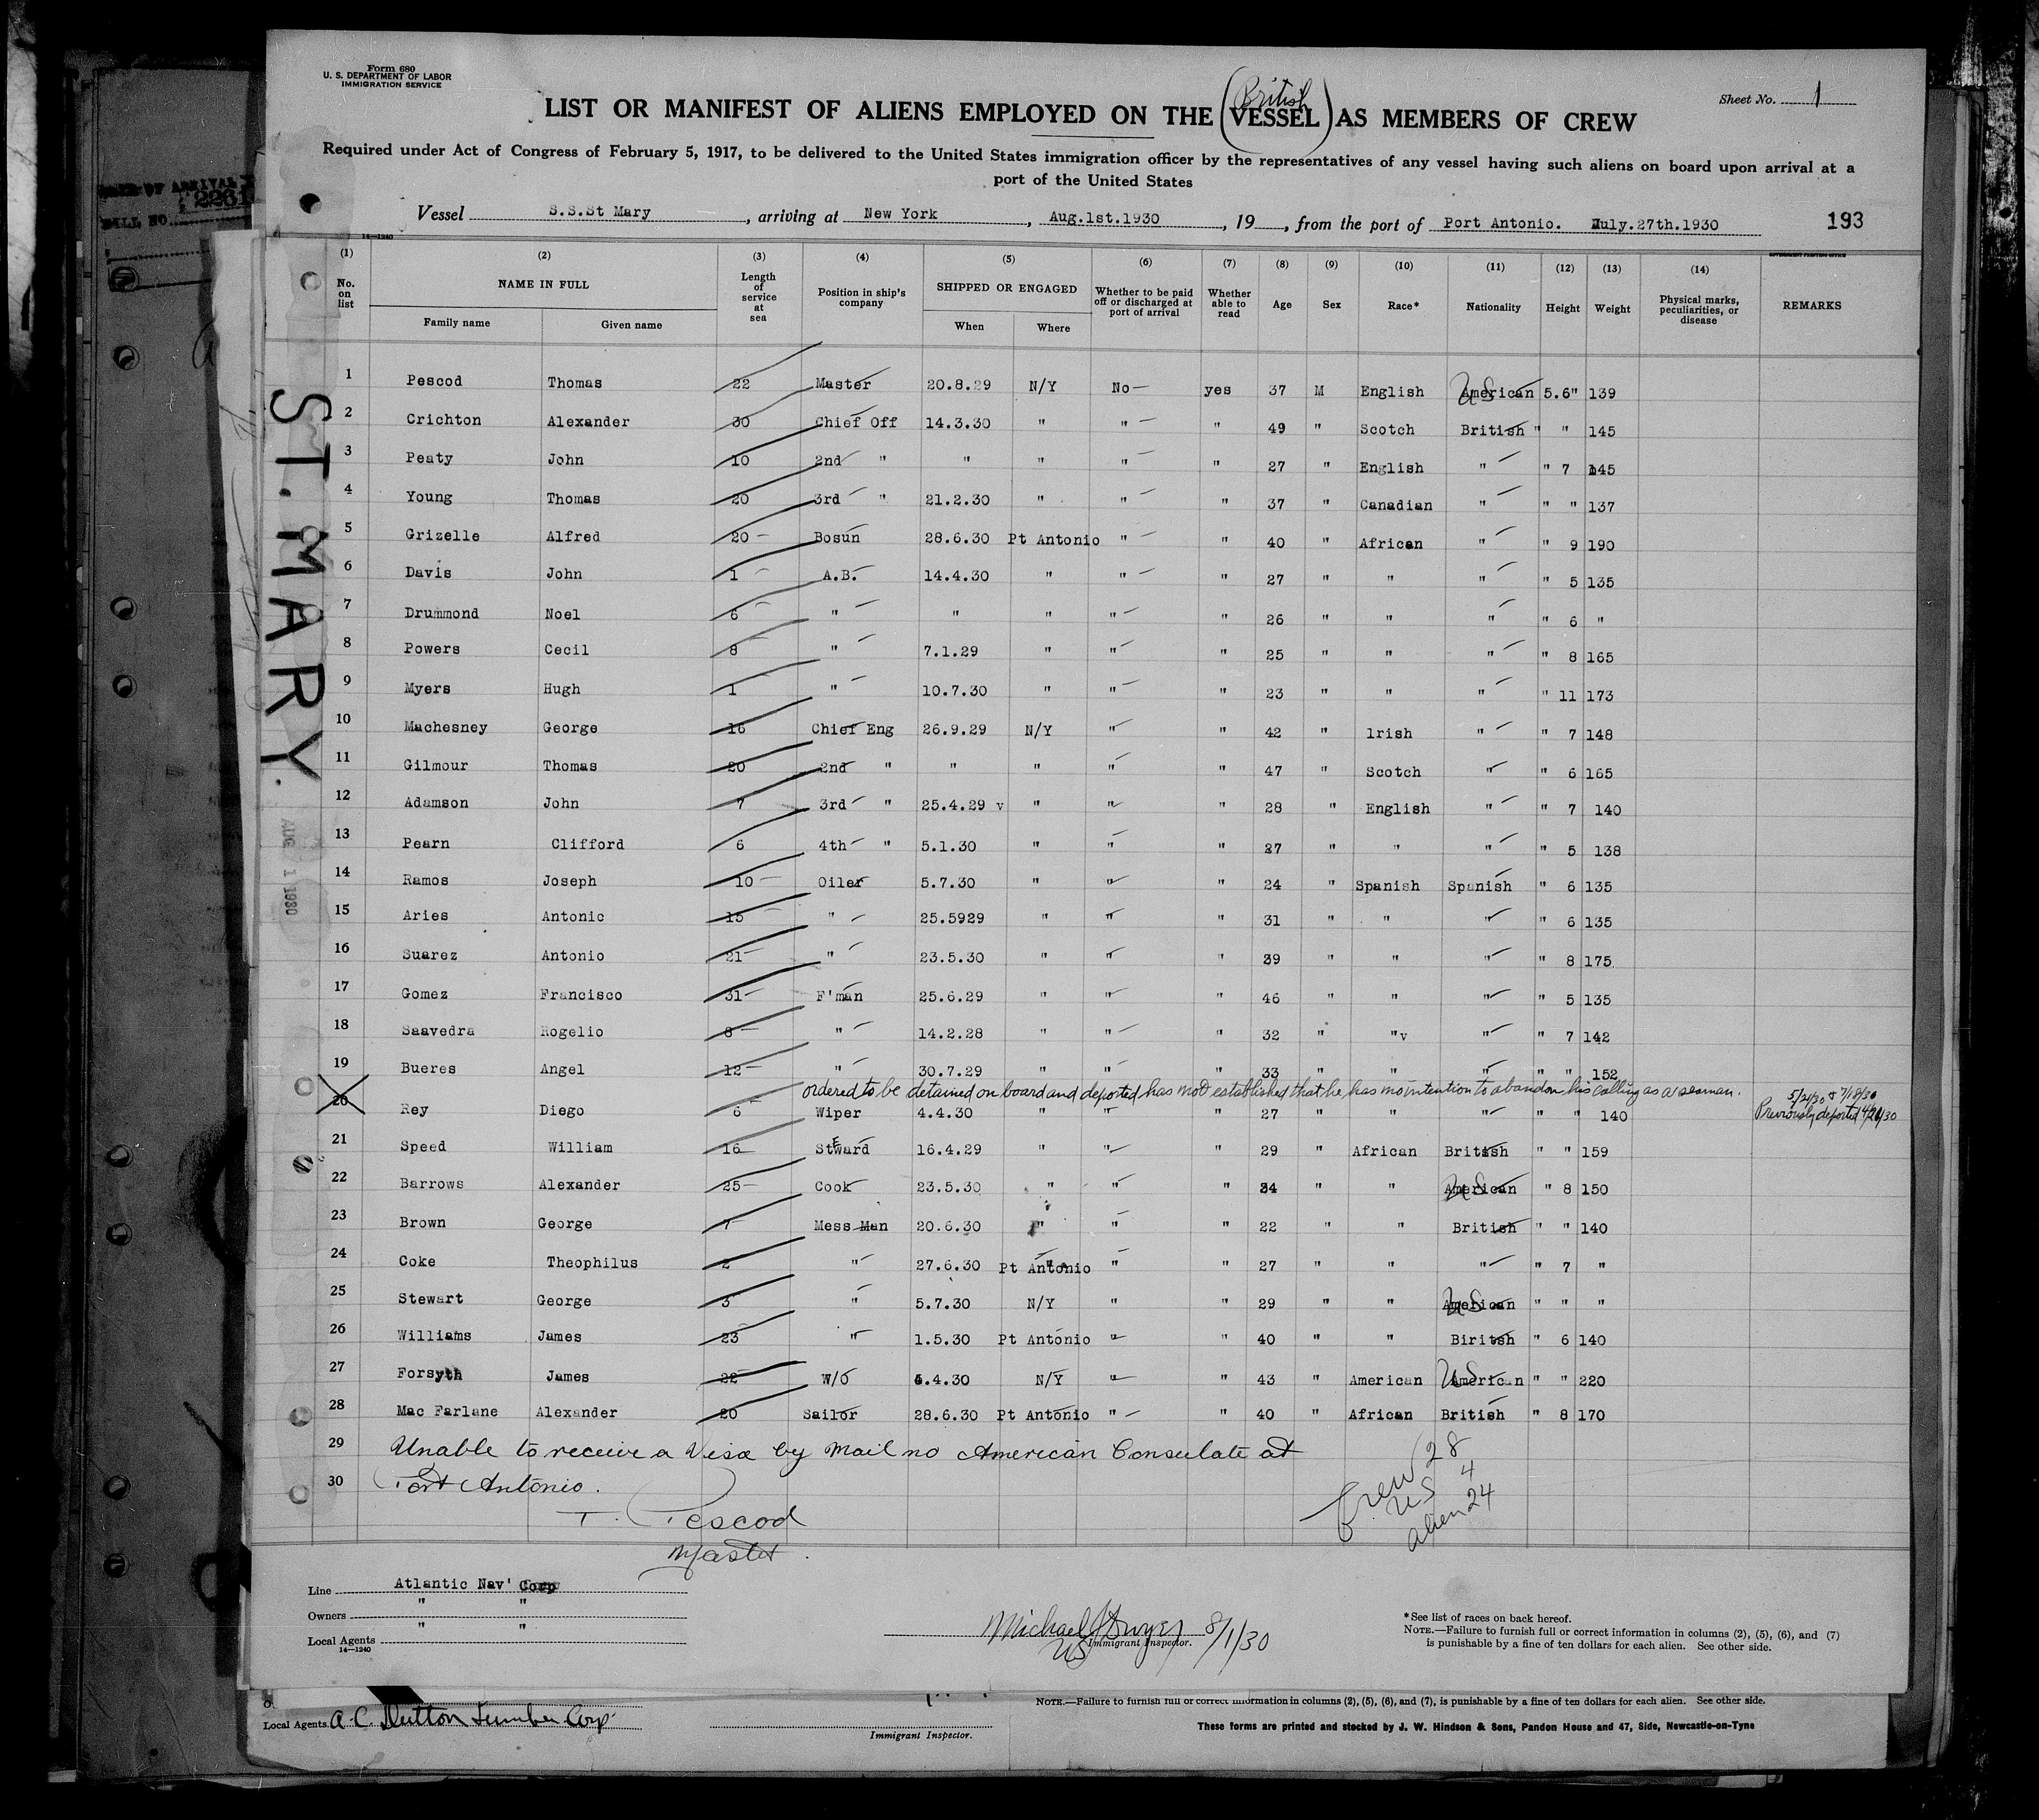 Form 680
U. S. DEPARTMENT OF LABOR
IMMIGRATION SERVICE
Sheet No. 1
British
LIST OR MANIFEST OF ALIENS EMPLOYED ON THE (VESSEL) AS MEMBERS OF CREW
Required under Act of Congress of February 5, 1917, to be delivered to the United States immigration officer by the representatives of any vessel having such aliens on board upon arrival at a
port of the United States
Vessel S.S.St Mary, arriving at New York, Aug.1st.1930, 19, from the port of Port Antonio. July.27th.1930 193
14—1240
GOVERNMENT PRINTING OFFICE
(1) (2) (3) (4) (5) (6) (7) (8) (9) (10) (11) (12) (13) (14)
No. on list NAME IN FULL Family name Given name Length of service at sea Position in ship's company SHIPPED OR ENGAGED When Where Whether to be paid off or discharged at port of arrival Whether able to read Age Sex Race* Nationality Height Weight Physical marks, peculiarities, or disease REMARKS
1 Pescod Thomas 22 Master 20.8.29 N/Y No yes 37 M English American US 5.6" 139
2 Crichton Alexander 30 Chief Off 14.3.30 " " " 49 " Scotch British " " 145
3 Peaty John 10 2nd " " " " " 27 " English " " 7 145
4 Young Thomas 20 3rd " 21.2.30 " " " 37 " Canadian " " " 137
5 Grizelle Alfred 20 Bosun 28.6.30 Pt Antonio " " 40 " African " " 9 190
6 Davis John 1 A.B. 14.4.30 " " " 27 " " " " 5 135
7 Drummond Noel 6 " " " " " 26 " " " " 6 "
8 Powers Cecil 8 " 7.1.29 " " " 25 " " " " 8 165
9 Myers Hugh 1 " 10.7.30 " " " 23 " " " " 11 173
10 Machesney George 16 Chief Eng 26.9.29 N/Y " " 42 " lrish " " 7 148
11 Gilmour Thomas 20 2nd " " " " " 47 " Scotch " " 6 165
12 Adamson John 7 3rd " 25.4.29 v " " " 28 " English " " 7 140
13 Pearn Clifford 6 4th " 5.1.30 " " " 27 " " " " 5 138
14 Ramos Joseph 10 Oiler 5.7.30 " " " 24 " Spanish Spanish " 6 135
15 Aries Antonio 15 " 25.5929 " " " 31 " " " " 6 135
16 Suarez Antonio 21 " 23.5.30 " " " 39 " " " " 8 175
17 Gomez Francisco 31 F'man 25.6.29 " " " 46 " " " " 5 135
18 Saavedra Rogelio 8 " 14.2.28 " " " 32 " "v " " 7 142
19 Bueres Angel 12 " 30.7.29 " " " 33 " " " " " 152
ordered to be detained on board and deported has not established that he has no intention to abandon his calling as a seaman.
5/21/30 & 7/18/30
20 Rey Diego 6 Wiper 4.4.30 " " " 27 " " " " " 140 Previously deported 4/21/30
21 Speed William 16 Steward 16.4.29 " " " 29 " African British " " 159
22 Barrows Alexander 25 Cook 23.5.30 " " " 34 " " American US " 8 150
23 Brown George 7 Mess Man 20.6.30 " " " 22 " " British " " 140
24 Coke Theophilus 2 " 27.6.30 Pt Antonio " " 27 " " " " 7 "
25 Stewart George 3 " 5.7.30 N/Y " " 29 " " American US " " "
26 Williams James 23 " 1.5.30 Pt Antonio " " 40 " " Biritsh " 6 140
27 Forsyth James 22 W/O 4.30 N/Y " " 43 " American American US " " 220
28 Mac Farlane Alexander 20 Sailor 28.6.30 Pt Antonio " " 40 " African British " 8 170
29 Unable to receive a Visa by Mail no American Consulate at
30 Port Antonio.
T. Pescod
Master.
Crew 28
US 4
alien 24
ST. MARY.
AUG 1 1930
Line Atlantic Nav' Corp
Owners " "
Local Agents " "
14—1240
Michael J Dwyer 8/1/30
US Immigrant Inspector.
*See list of races on back hereof.
NOTE.—Failure to furnish full or correct information in columns (2), (5), (6), and (7)
is punishable by a fine of ten dollars for each alien. See other side.
NOTE.—Failure to furnish full or correct information in columns (2), (5), (6), and (7), is punishable by a fine of ten dollars for each alien. See other side.
Local Agents A.C. Dutton Lumber Corp.
Immigrant Inspector.
These forms are printed and stocked by J. W. Hindson & Sons, Pandon House and 47, Side, Newcastle-on-Tyne